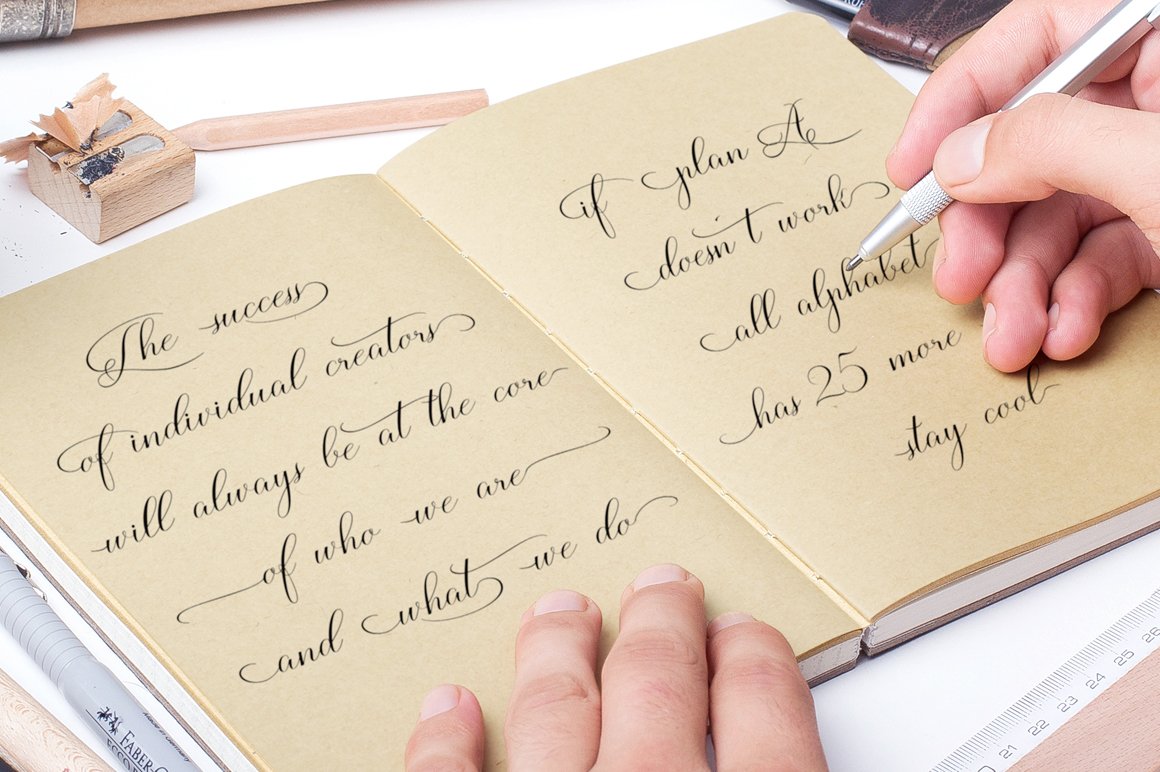 The success
of individual creators
will always be at the core
of who we are
and what we do
if plan A
doesn't work
all alphabet
has 25 more
stay cool
FABER-C
ECCO
21 22 23 24 25 26